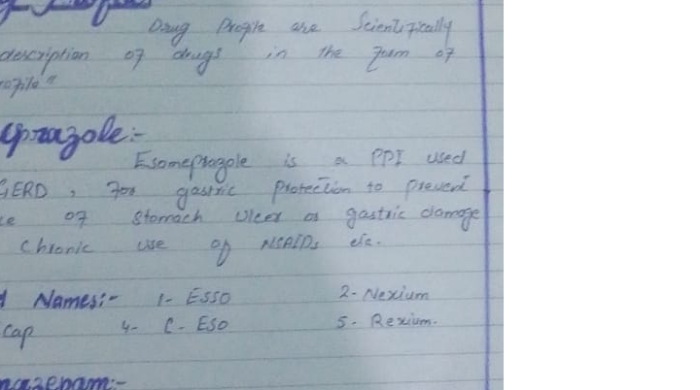 Drug Profile are Scientifically
description of drugs in the form of
prazole:-
Esomeprazole is a PPI used
GERD, For gastric protection to prevent
of stomach ulcer or gastric damage
Chronic use of NSAIDs etc.
Names:- 1- ESSO 2- Nexium
Cap 4- C-ESO 5- Rexium.
azepam:-